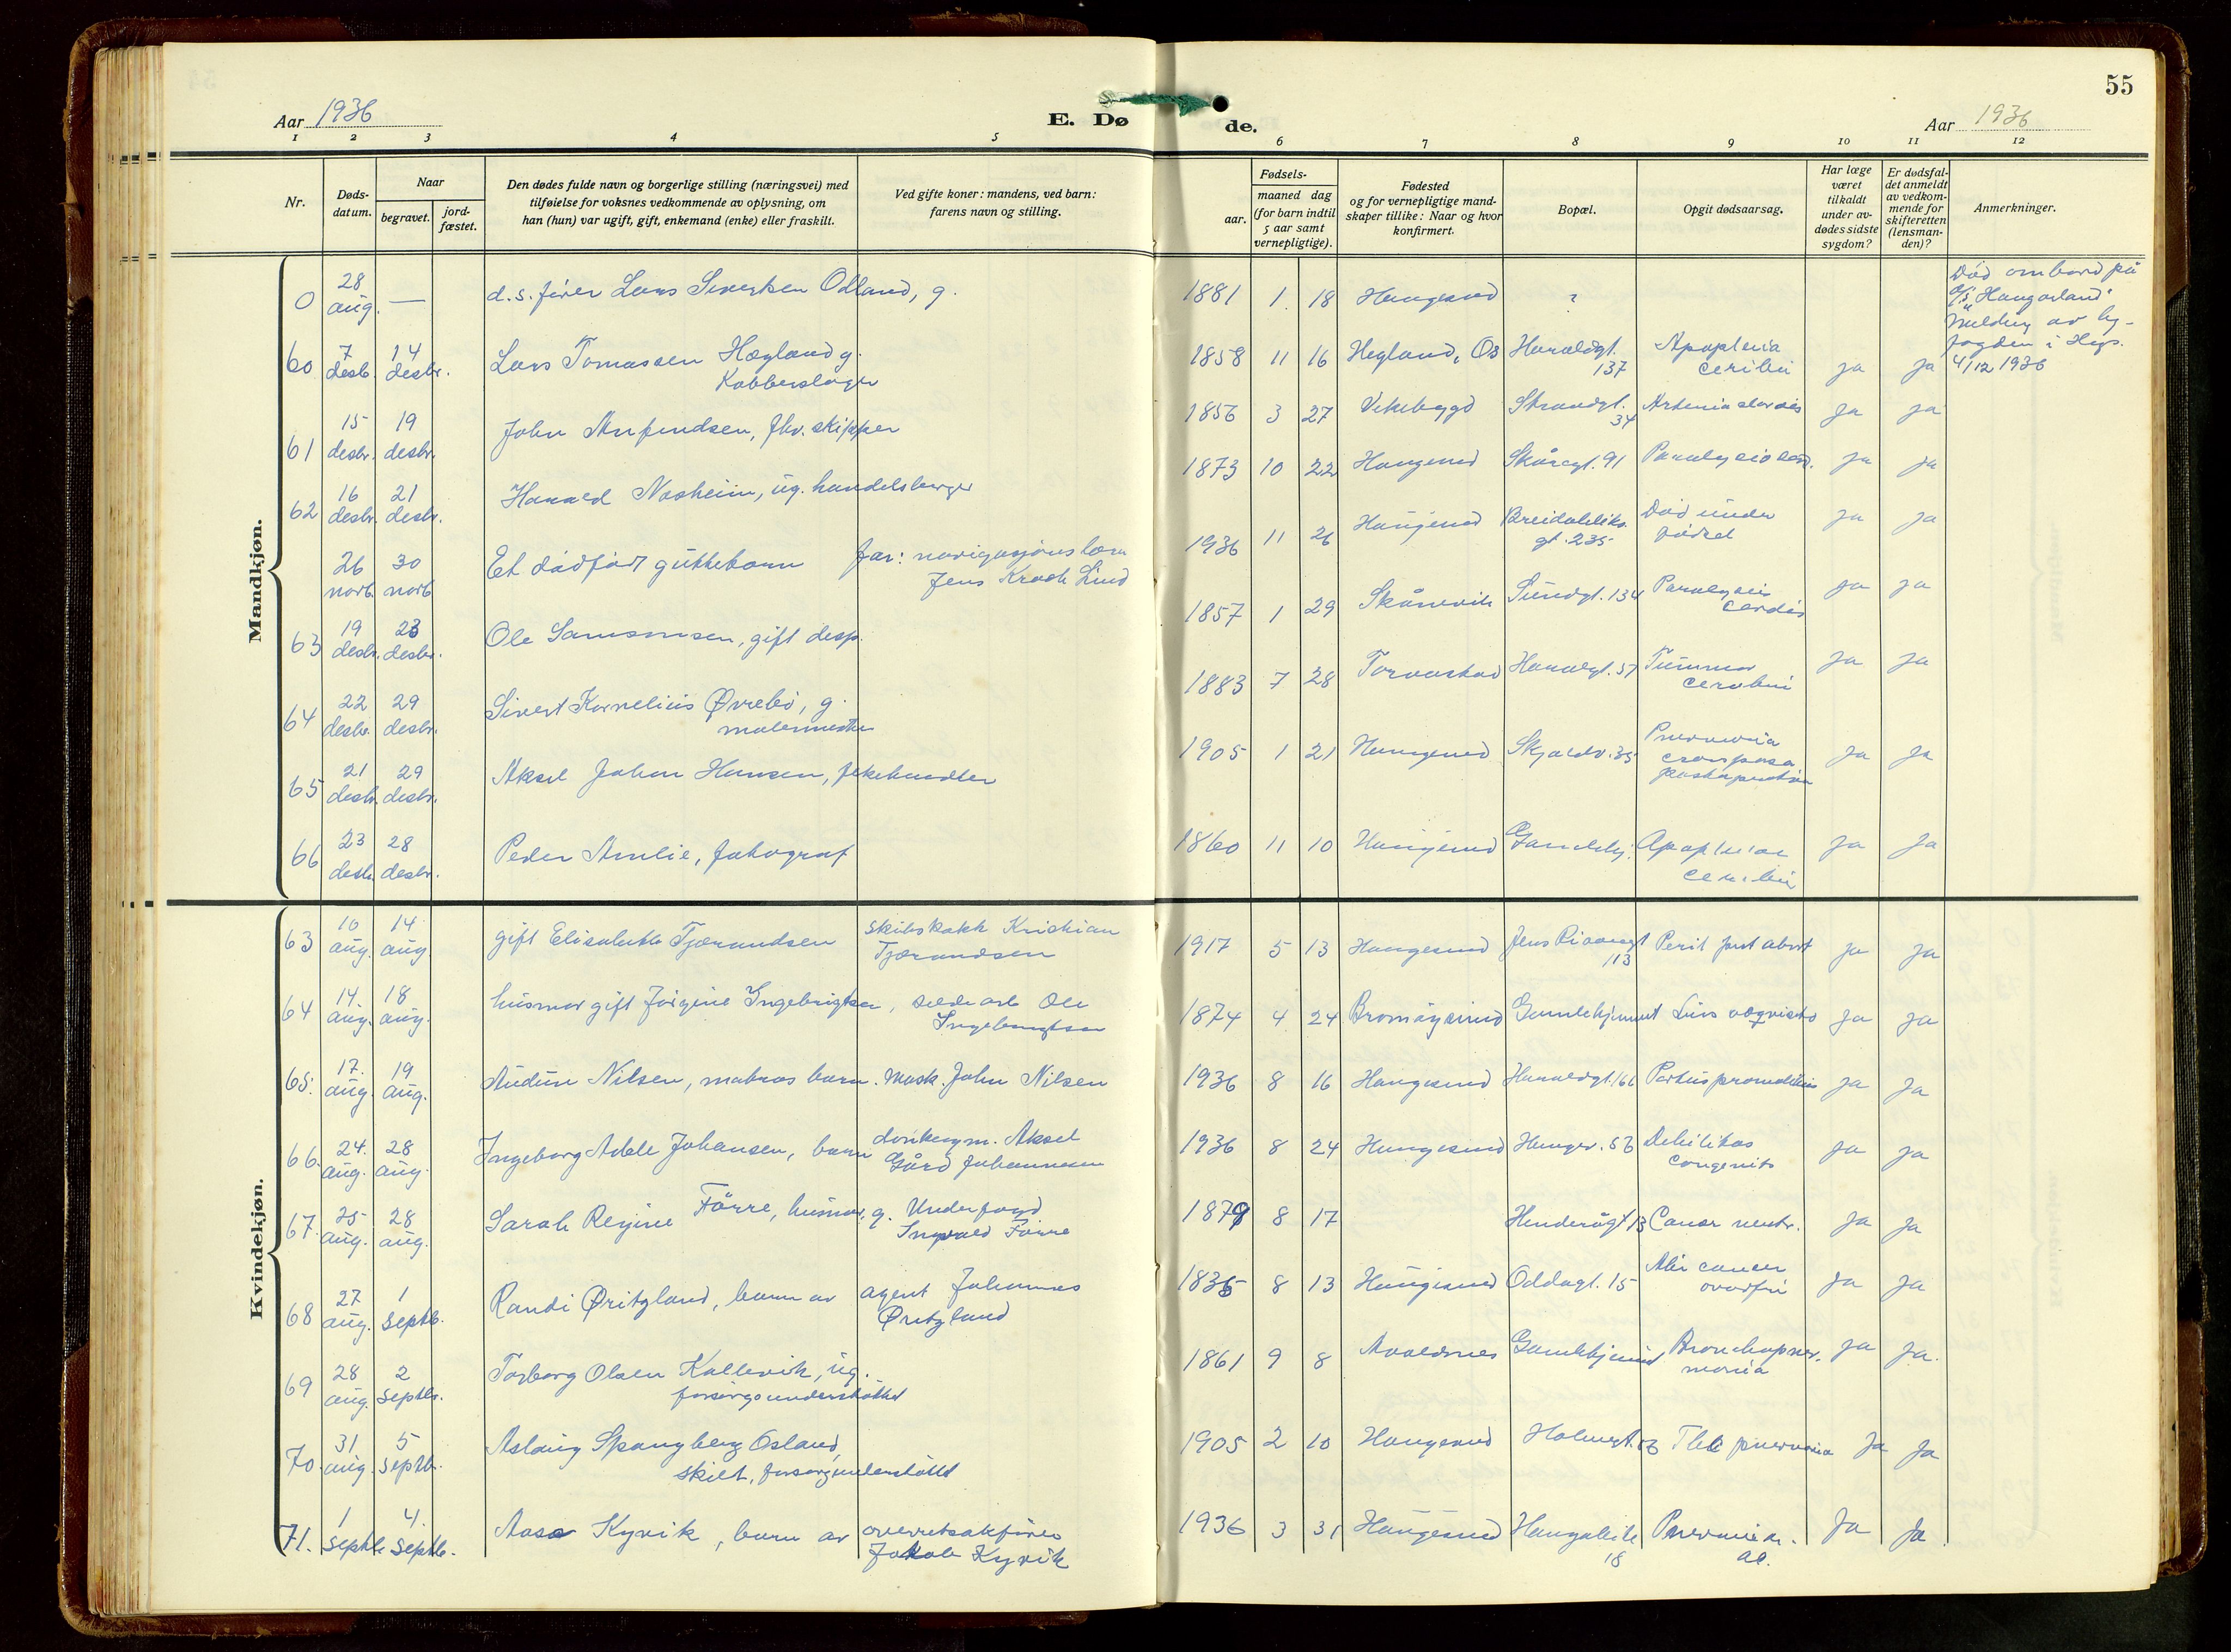 55
Aar 1936
E. Dø
de.
Aar 1936
1 2 3 4 5 6 7 8 9 10 11 12
Nr.
Døds-
datum.
Naar
begravet.
jord-
fæstet.
Den dødes fulde navn og borgerlige stilling (næringsvei) med
tilføielse for voksnes vedkommende av oplysning, om
han (hun) var ugift, gift, enkemand (enke) eller fraskilt.
Ved gifte koner: mandens, ved barn:
farens navn og stilling.
Fødsels-
aar.
maaned dag
(for barn indtil
5 aar samt
vernepligtige).
Fødested
og for vernepligtige mand-
skaper tillike: Naar og hvor
konfirmert.
Bopæl.
Opgit dødsaarsag.
Har læge
været
tilkaldt
under av-
dødes sidste
sygdom?
Er dødsfal-
det anmeldt
av vedkom-
mende for
skifteretten
(lensman-
den)?
Anmerkninger.
Mandkjøn.
0 28 aug. — d.s. fører Lars Sivertsen Odland, g. 1881 1 18 Haugesund ?
Død ombord på
"Haugarland"
Melding av by-
fogden i Hgs.
4/12 1936
60 7 desb. 14 desbr. Lars Tomassen Hægland g.
Kobberslager 1858 11 16 Hegland, Os Haraldgt.
137 Apoplexia
cerebri ja ja
61 15 desbr. 19 desbr. John Arnfindsen, fhv. skipper 1856 3 27 Vikebygd Strandgt.
34 ja ja
62 16 desbr. 21 desbr. Harald Nosheim, ug. handelsborger 1873 10 22 Haugesund Skåregt. 91 ja ja
26 novb. 30 novb Et dødfødt guttebarn far: navigasjonslærer
Jens Krosh Lind 1936 11 26 Haugesund Breidabliks
gt. 235 Død under
fødsel ja ja
63 19 desbr. 23 desbr. Ole Samsonsen, gift desp. 1857 1 29 Skånevik Sundgt. 134 Paralysis
cordis ja ja
64 22 desbr. 29 desbr. Sivert Kornelius Øvrebø, g.
malermester 1883 7 28 Torvastad Haraldgt. 57 Tummor
cerebri ja ja
65 21 desbr. 29 desbr. Aksel Johan Hansen, fiskehandler 1905 1 21 Haugesund Skjoldv. 35 ja ja
66 23 desbr. 28 desbr. Peder Amlie, fotograf 1860 11 10 Haugesund Gamlehj. Apoplexia
cerebri ja ja
Kvindekjøn.
63 10 aug. 14 aug. gift Elisabeth Tjørandsen skibskokk Kristian
Tjørandsen 1917 5 13 Haugesund Jens Risøesgt
113 Perit post abort ja ja
64 14. aug. 18 aug. husmor gift Jørgine Ingebrigtsen, Ole
Ingebrigtsen 1874 4 24 Gamlehjemmet ja ja
65. 17. aug. 19 aug. Audun Nilsen, matros barn. Mask. John Nilsen 1936 8 16 Haugesund Haraldgt. 166 Partus ja ja
66. 24. aug. 28 aug. Ingeborg Adele Johansen, barn donkeym. Aksel
Gård Johannesen 1936 8 24 Haugesund Debilitas
congenita ja ja
67. 25 aug. 28 aug. Sarah Regine Førre, husmor, g. Underfogd
Ingvald Førre 1879 8 17 Cancer ventr. ja ja
68 27 aug. 1 septb. Randi Øritzland, barn av agent Johannes
Øritzland 8 13 Haugesund Oddagt. 15 ja ja
69 28 aug. 2 septbr. Torborg Olsen Kallevik, ug.
forsorgsunderstøttet 1861 9 8 Avaldsnes Gamlehjemmet Bronchopneu-
monia ja ja.
70. 31. aug. 5 septb. Aslaug Spangberg Osland,
skilt, forsorgsunderstøttet 1905 2 10 Haugesund Ja Ja
71. 1 septb. 4. septb. Aasa Kyvik, barn av overretsakfører
Jakob Kyvik 1936 3 31 Haugesund
18 Pneumonia
ac. Ja Ja